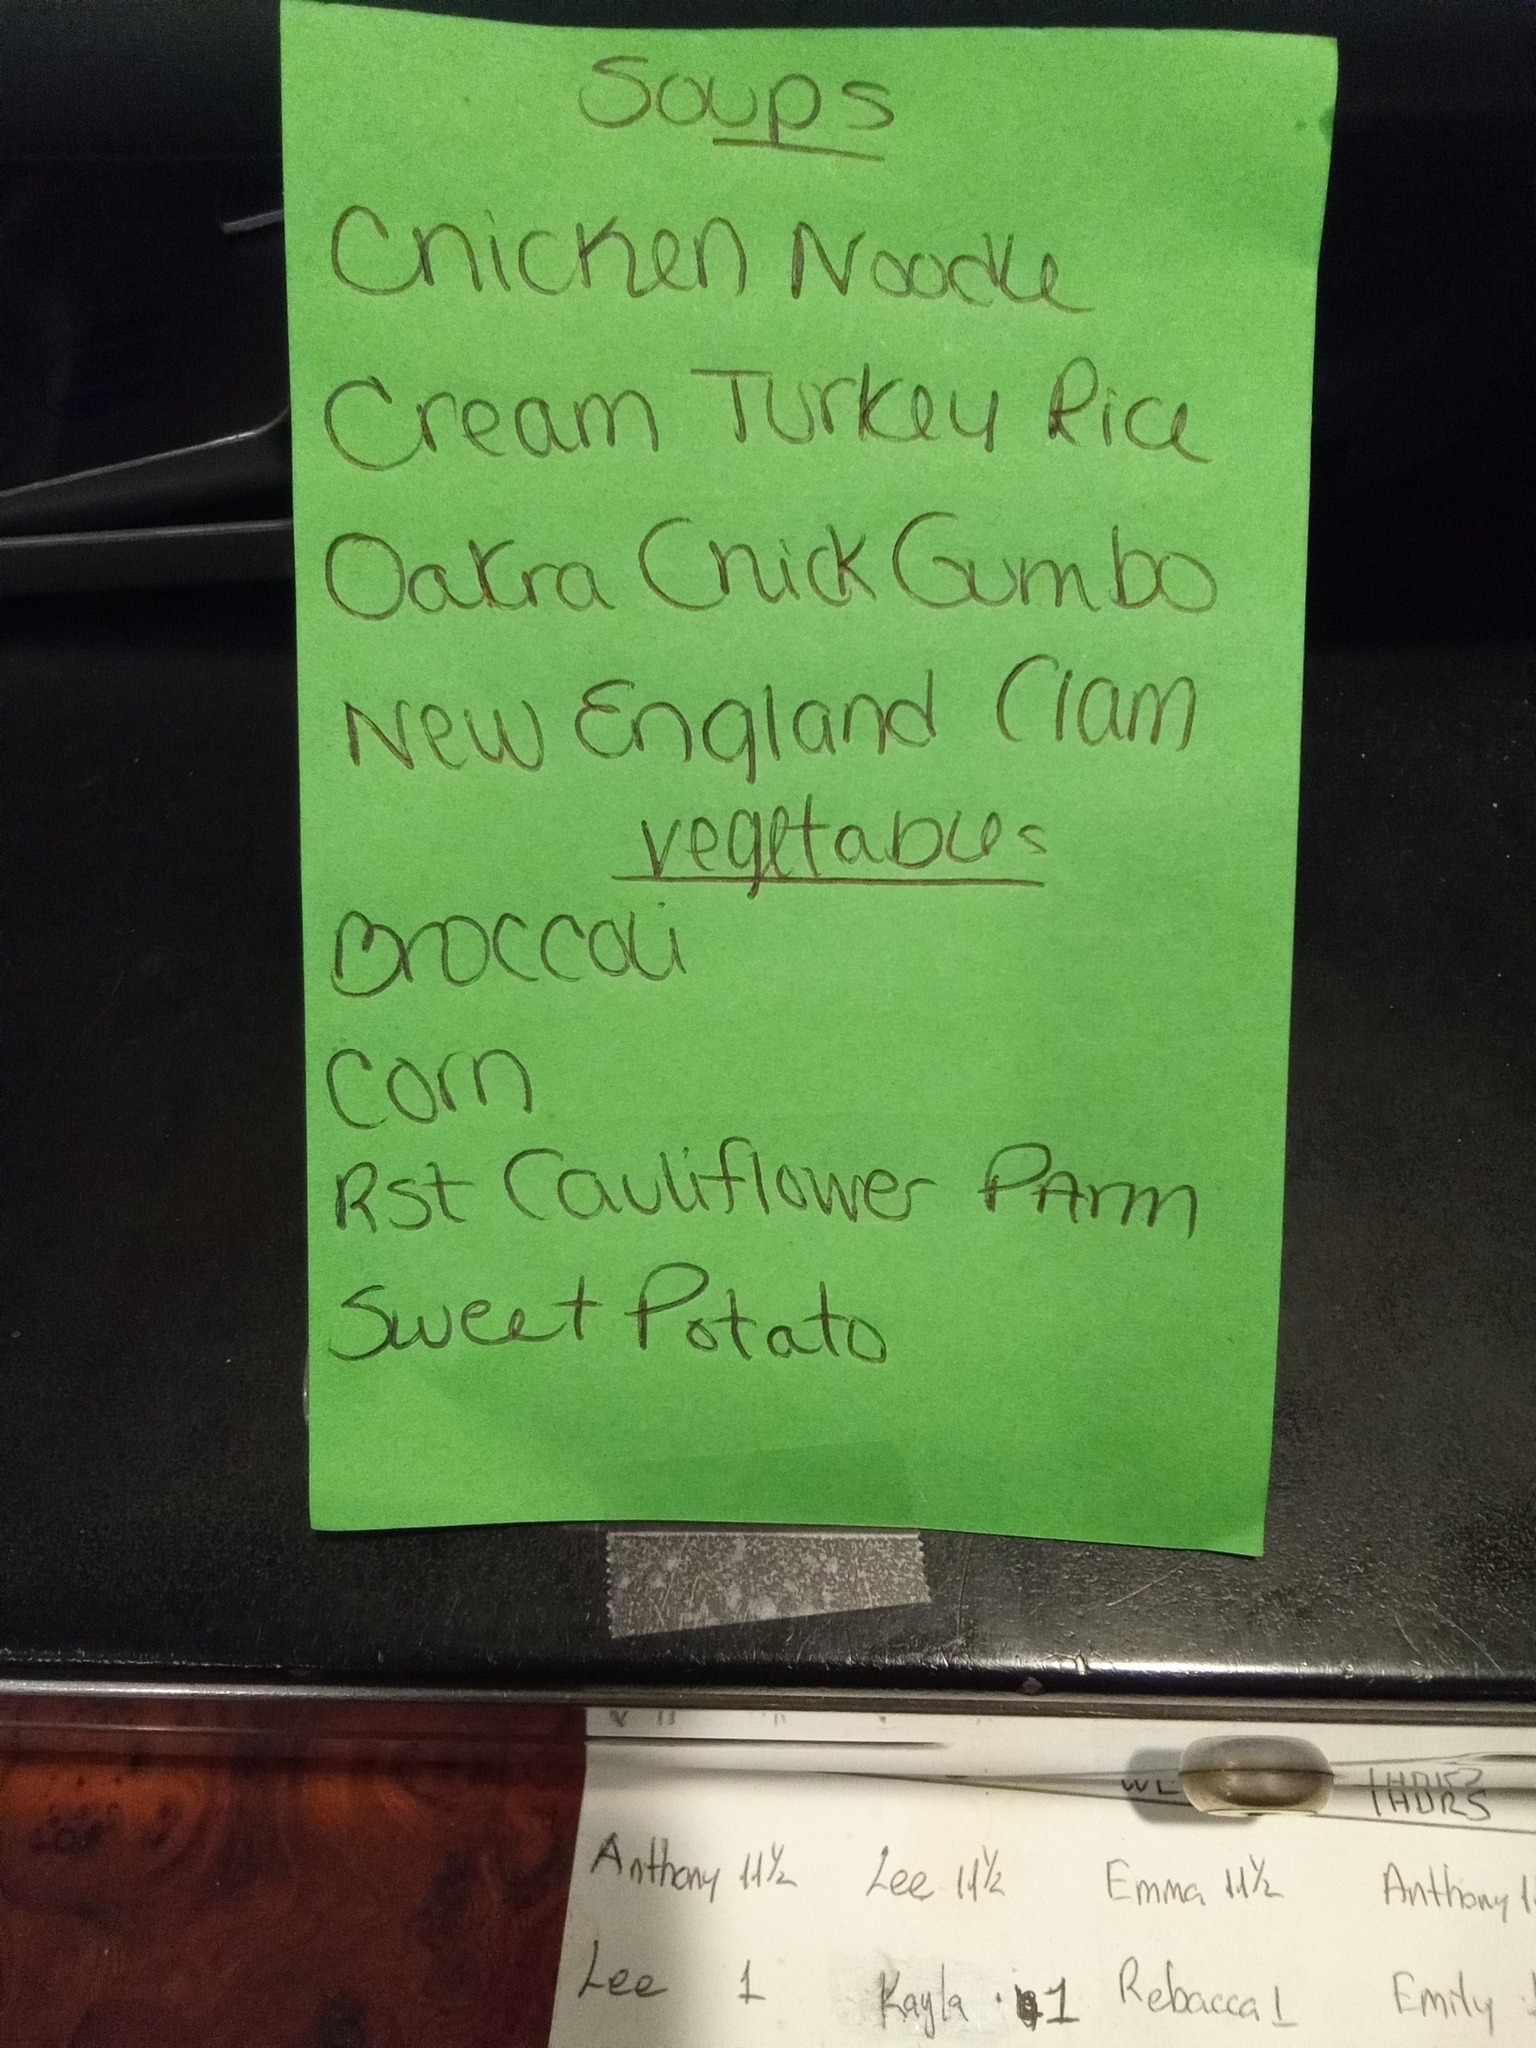 Soups
Chicken Noodle
Cream Turkey Rice
Oakra Chick Gumbo
New England Clam
vegetables
Broccoli
Corn
Rst Cauliflower Parm
Sweet Potato
THURS
Anthony 11½ Lee 11½ Emma 11½ Anthony
Lee 1 Kayla 1 Rebacca 1 Emily